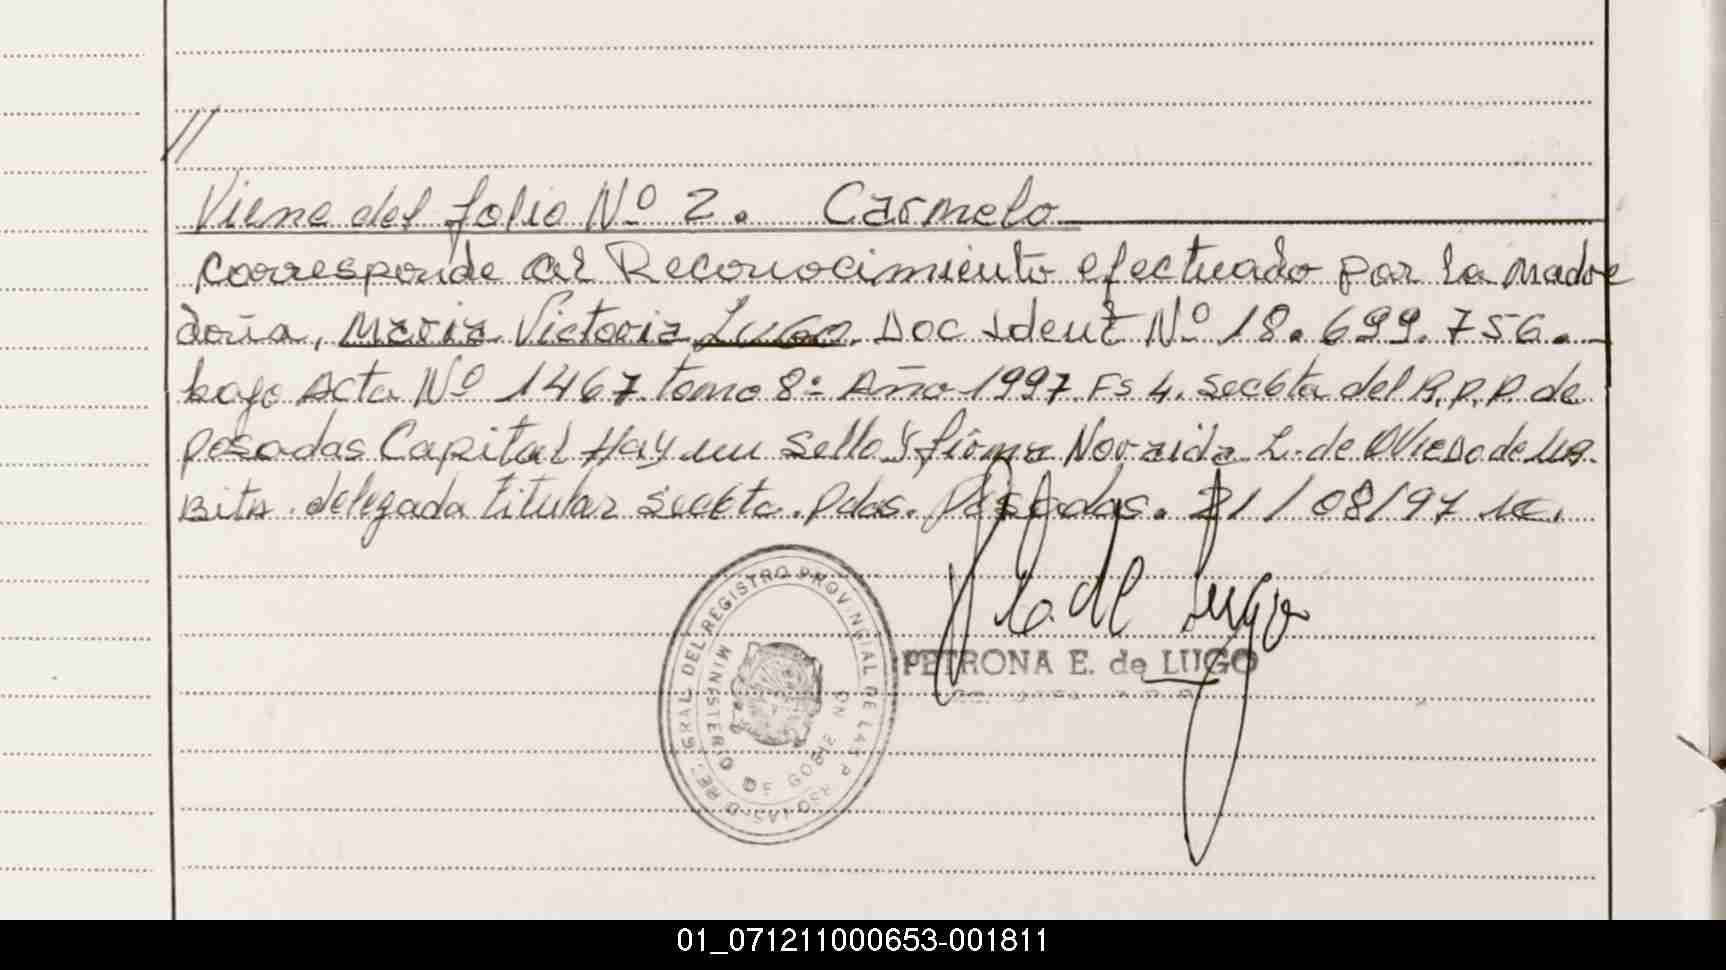 //
Viene del folio Nº 2. Carmelo
corresponde al Reconocimiento efectuado por la madre
doña, Maria Victoria Lugo. Doc Ident Nº 18.699.756.
bajo Acta Nº 1467 tomo 8º Año 1997. Fs 4. Secc 6ta del R.P.P. de
posadas Capital Hay un sello y firma Noraida L. de Oviedo de Ur
Bita. delegada titular Secc 6ta. Pdas. Posadas. 21/08/97
P. E. de Lugo
PETRONA E. de LUGO
GRAL. DEL REGISTRO PROVINCIAL DE LAS PERSONAS
MINISTERIO DE GOBIERNO
01_071211000653-001811